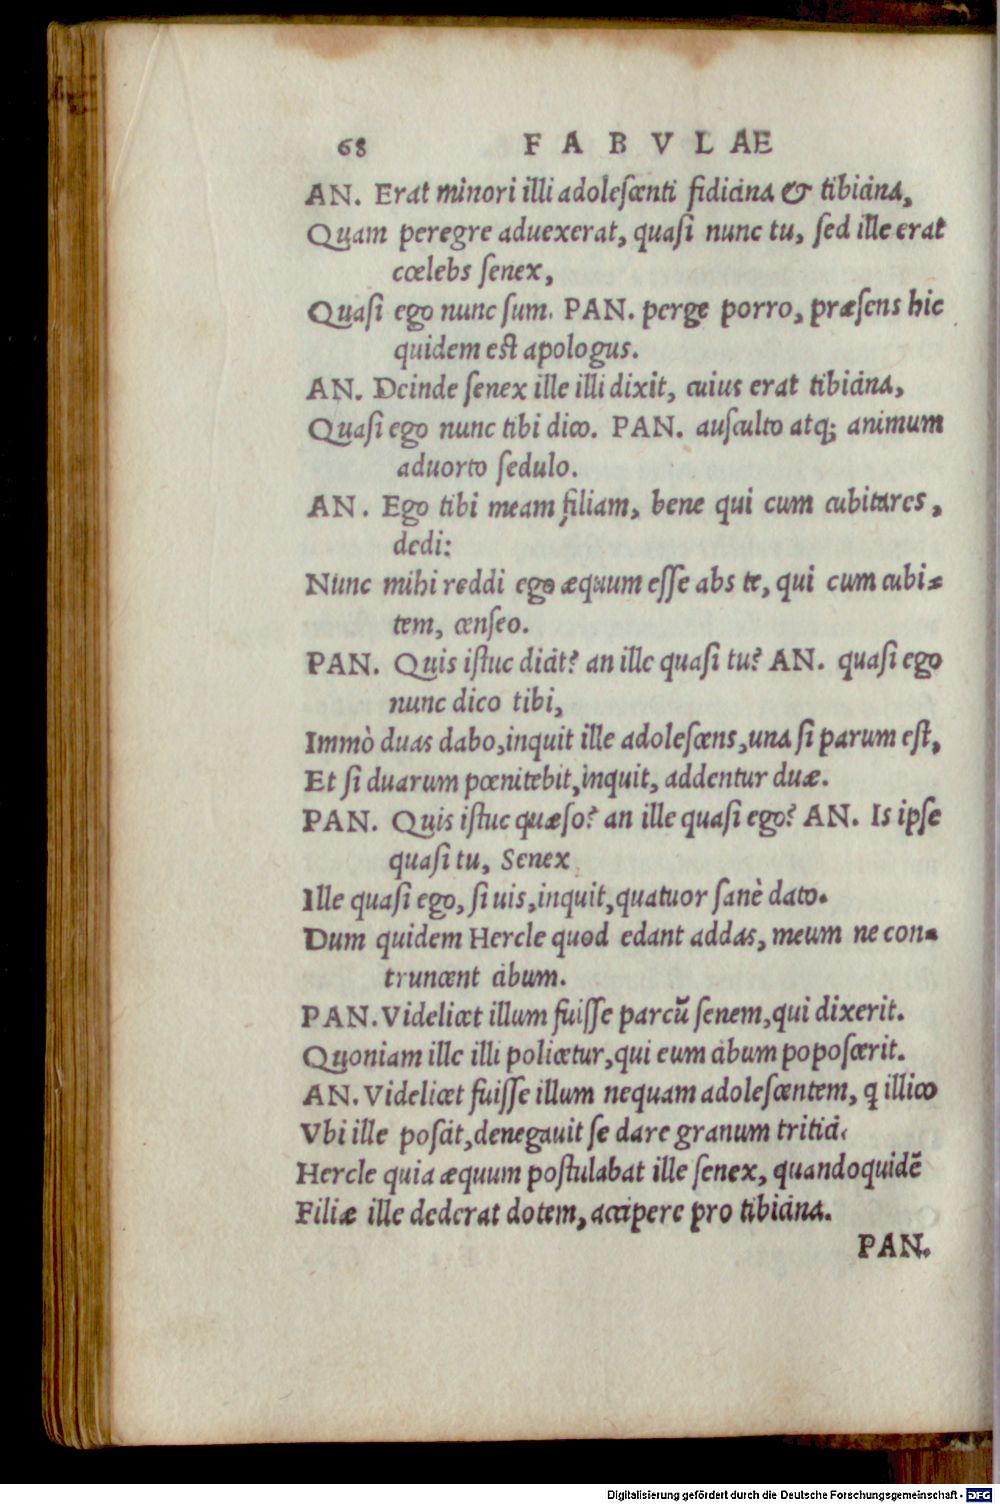 68 FABVLAE
AN. Erat minori illi adolescenti fidicina & tibicina,
Quam peregre aduexerat, quasi nunc tu, sed ille erat
cœlebs senex,
Quasi ego nunc sum. PAN. perge porro, præsens hic
quidem est apologus.
AN. Deinde senex ille illi dixit, cuius erat tibicina,
Quasi ego nunc tibi dico. PAN. ausculto atq; animum
aduorto sedulo.
AN. Ego tibi meam filiam, bene qui cum cubitares,
dedi:
Nunc mihi reddi ego æquum esse abs te, qui cum cubi-
tem, censeo.
PAN. Quis istuc dicit? an ille quasi tu? AN. quasi ego
nunc dico tibi,
Immò duas dabo, inquit ille adolescens, una si parum est,
Et si duarum pœnitebit, inquit, addentur duæ.
PAN. Quis istuc quæso? an ille quasi ego? AN. Is ipse
quasi tu, Senex
Ille quasi ego, si uis, inquit, quatuor sanè dato.
Dum quidem Hercle quod edant addas, meum ne con-
truncent cibum.
PAN. Videlicet illum fuisse parcũ senem, qui dixerit.
Quoniam ille illi policetur, qui eum cibum poposcerit.
AN. Videlicet fuisse illum nequam adolescentem, q illico
Vbi ille poscit, denegauit se dare granum tritici.
Hercle quia æquum postulabat ille senex, quandoquidẽ
Filiæ ille dederat dotem, accipere pro tibicina.
PAN.
Digitalisierung gefördert durch die Deutsche Forschungsgemeinschaft - DFG